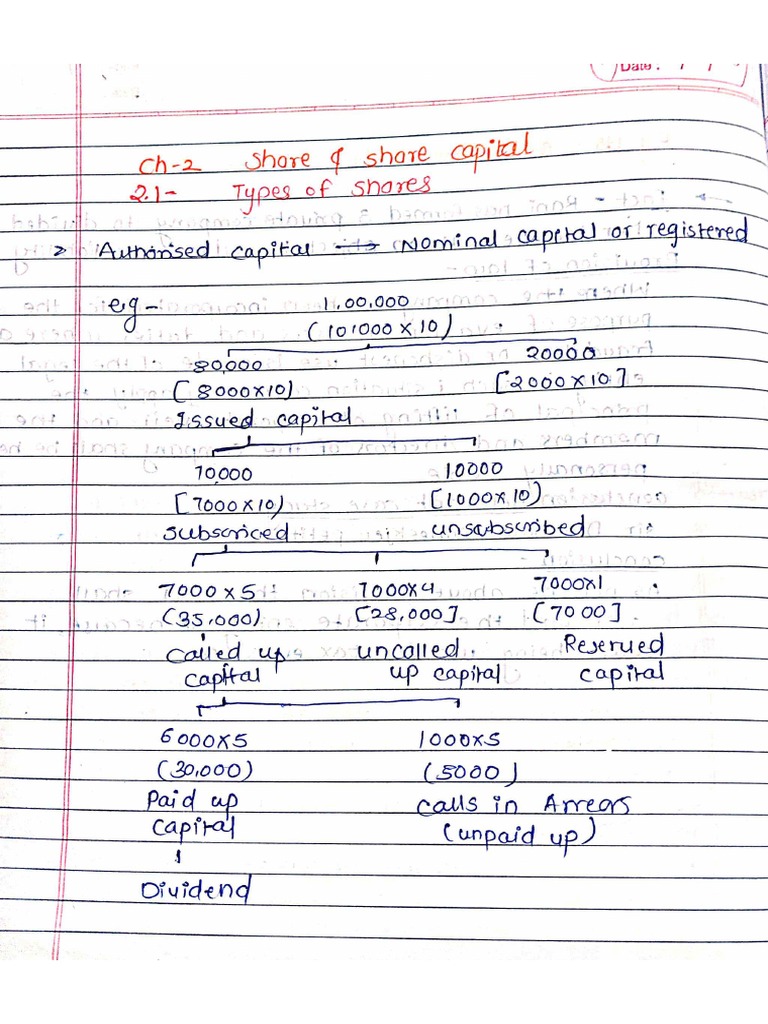 Date : / /
Ch-2 Share & share capital
2.1- Types of shares
> Authorised capital → Nominal capital or registered
eg - 1,00,000
(101000 X 10)
80,000 20000
[8000X10) [2000X10]
Issued capital
70,000 10000
[7000X10) [1000X10)
subscriced unsubscribed
7000 X 5 7000X4 7000X1
(35,000) [28,000] [7000]
Called up uncalled. Reserved
capital up capital capital
6000X5 1000X5
(30,000) (5000)
Paid up calls in Arrears
capital (unpaid up)
Dividend